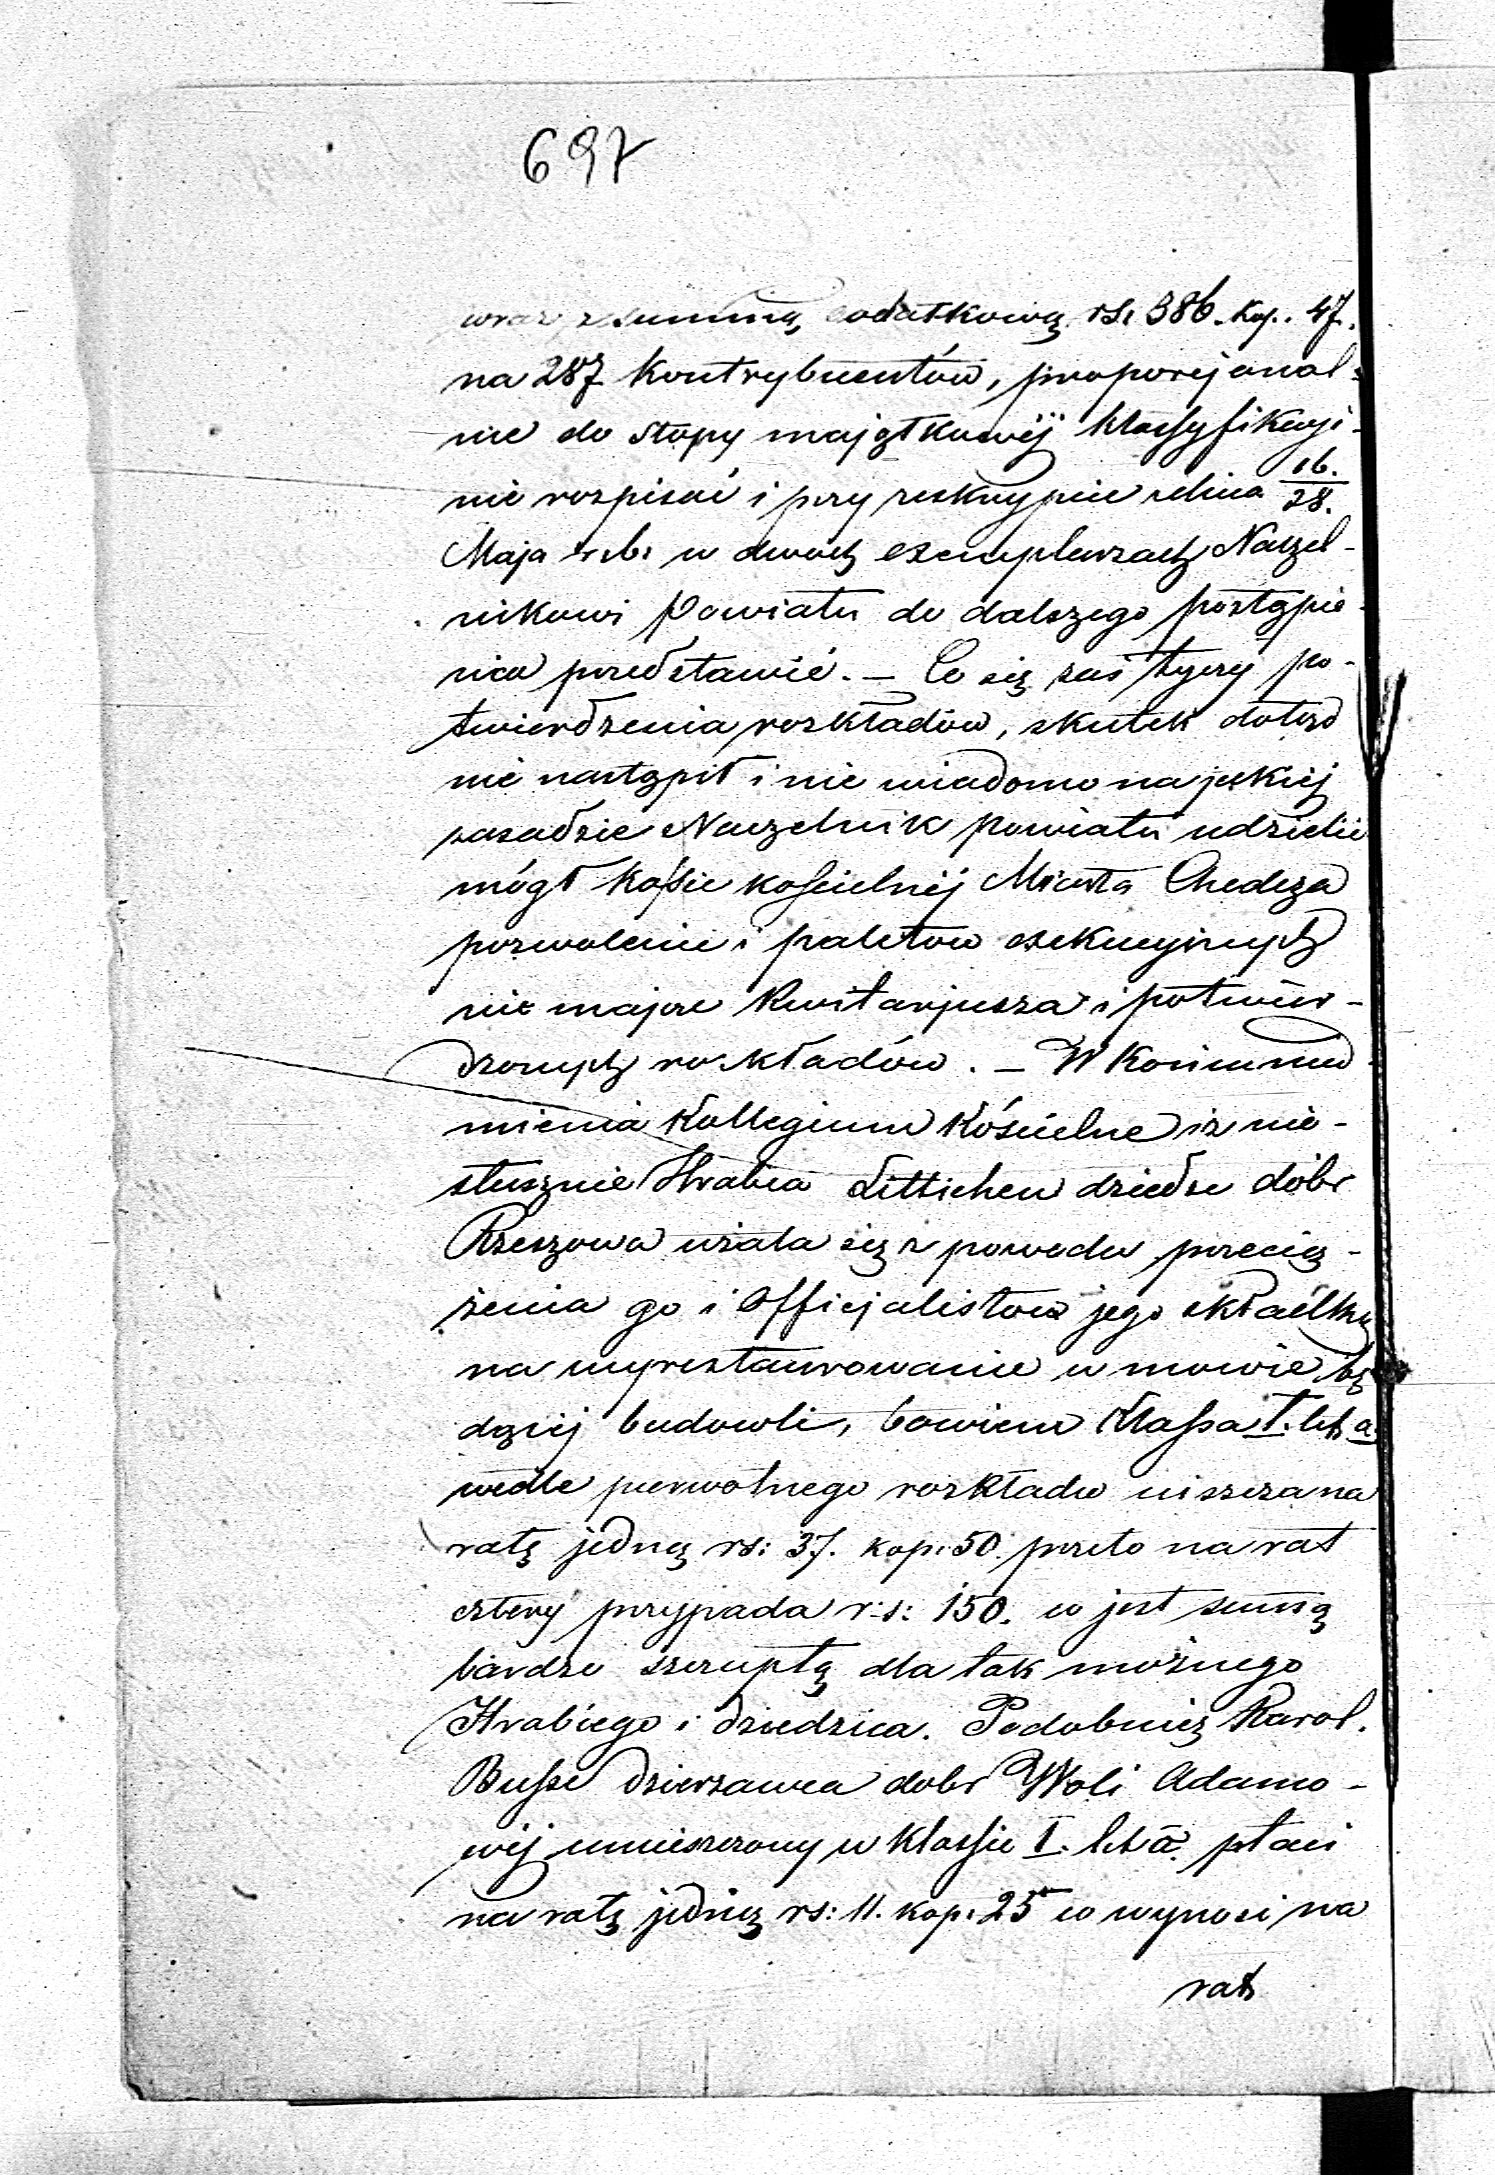 697
wraz z summą dodatkową rs. 386. kop. 47.
na 287 kontrybuentów, proporcjonal-
nie do stopy majątkowéj klassyfikacji-
nie rozpisać i przy reskrypcie z dnia 16./28.
Maja r.b. w dwóch exemplarzach Naczel-
nikowi Powiatu do dalszego postąpie-
nia przedstawić. – Co się zaś tyczy po-
twierdzenia rozkładów, skutek dotąd
nie nastąpił i nie wiadomo na jakiéj
zasadzie Naczelnik powiatu udzielić
mógł kassie kościelnéj Miasta
pozwolenie i paletów exekucyjnych
nie mając kwitarjusza i potwier-
dzonych rozkładów. – W końcu nad-
mienia Kollegium Kościelne iż nie-
słusznie Hrabia Littichen dziedzic dóbr
Rzeszowa użala się z powodu przecią-
żenia go i Officjalistów jego składką
na wyrestaurowanie w mowie bę
dącej budowli, bowiem Klassa I. lit. a.
wedle pierwotnego rozkładu uiszcza na
ratę jedną rs: 37. kop. 50. przeto na rat
cztery przypada r:s: 150. co jest summą
bardzo szczupłą dla tak możnego
Hrabiego i dziedzica. Podobnież Karol
Busse dzierżawca dóbr Woli Adamo-
wéj umieszczony w klassie I. lit. a. płaci
na ratę jedną rs: 11. kop. 25 co wynosi na
rat